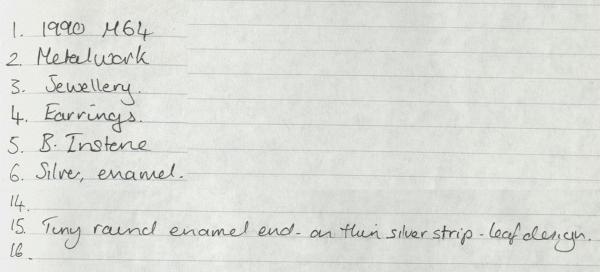 1. 1990 M64
2. Metalwork
3. Jewellery.
4. Earrings.
5. B. Instene
6. Silver, enamel.
14.
15. Tiny round enamel end - on thin silver strip - leaf design.
16.